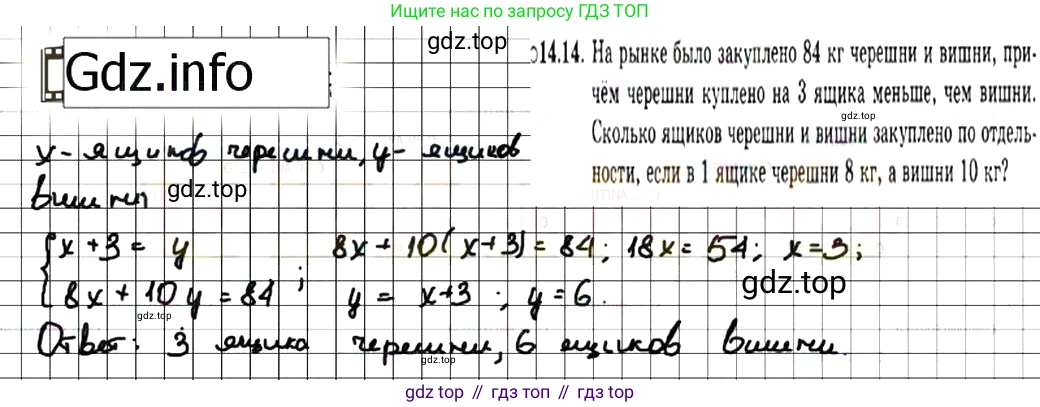 Ищите нас по запросу ГДЗ ТОП
gdz.top
Gdz.info
14.14. На рынке было закуплено 84 кг черешни и вишни, при-
чём черешни куплено на 3 ящика меньше, чем вишни.
gdz.top
Сколько ящиков черешни и вишни закуплено по отдель-
ности, если в 1 ящике черешни 8 кг, а вишни 10 кг?
x - ящиков черешни, y - ящиков
вишни
gdz.top
x + 3 = y
8x + 10y = 84 ;
8x + 10(x+3) = 84; 18x = 54; x = 3;
y = x+3 ; y = 6.
gdz.top
gdz.top
Ответ: 3 ящика черешни, 6 ящиков вишни.
gdz.top
gdz top // гдз топ // gdz.top